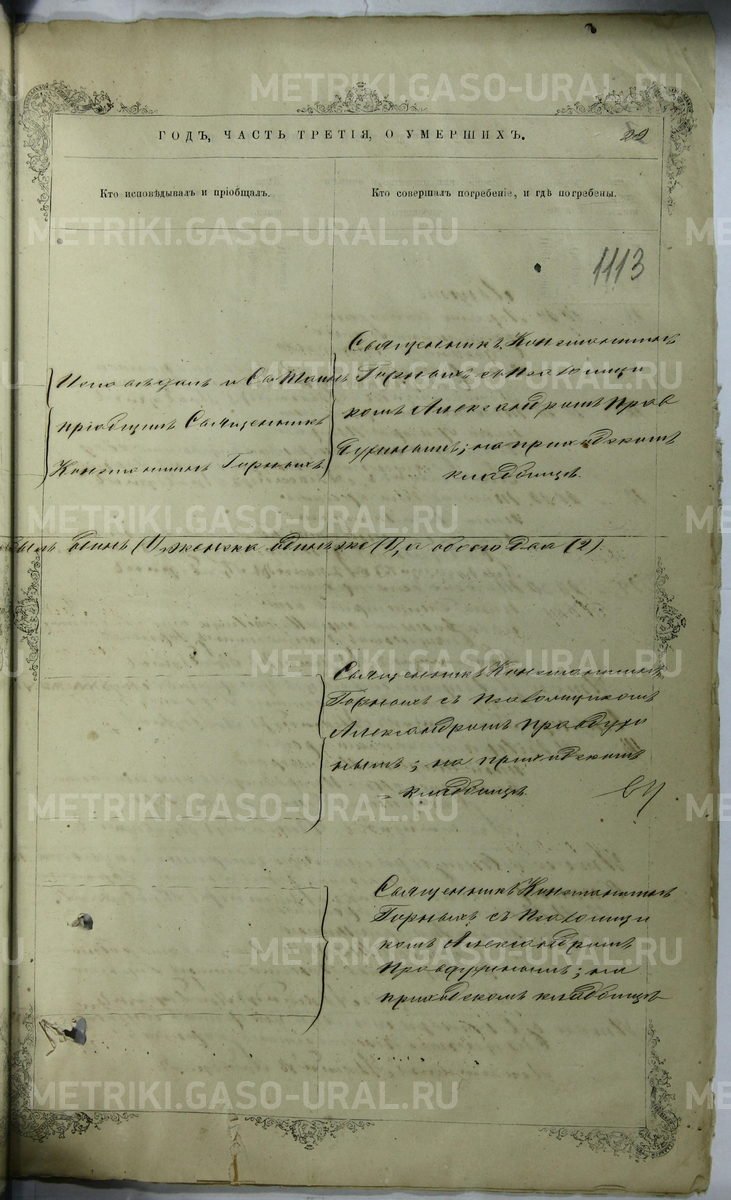 METRIKI.GASO-URAL.RU
ГОДЪ, ЧАСТЬ ТРЕТІЯ, О УМЕРШИХЪ.
22
Кто исповѣдывалъ и пріобщалъ.
Кто совершалъ погребеніе, и гдѣ погребены.
1113
Исповѣдалъ и Св. Таинъ
пріобщилъ Священникъ
Константинъ Горныхъ
Священникъ Константинъ
Горныхъ съ Псаломщи
комъ Александромъ Прав
духинымъ; на приходскомъ
кладбищѣ.
одинъ (1) женска одинъ же (1), а обоего два (2).
Священникъ Константинъ
Горныхъ съ Псаломщикомъ
Александромъ Правдухи
нымъ; на приходскомъ
кладбищѣ.
Священникъ Константинъ
Горныхъ съ Псаломщи
комъ Александромъ
Правдухинымъ; на
приходскомъ кладбищѣ